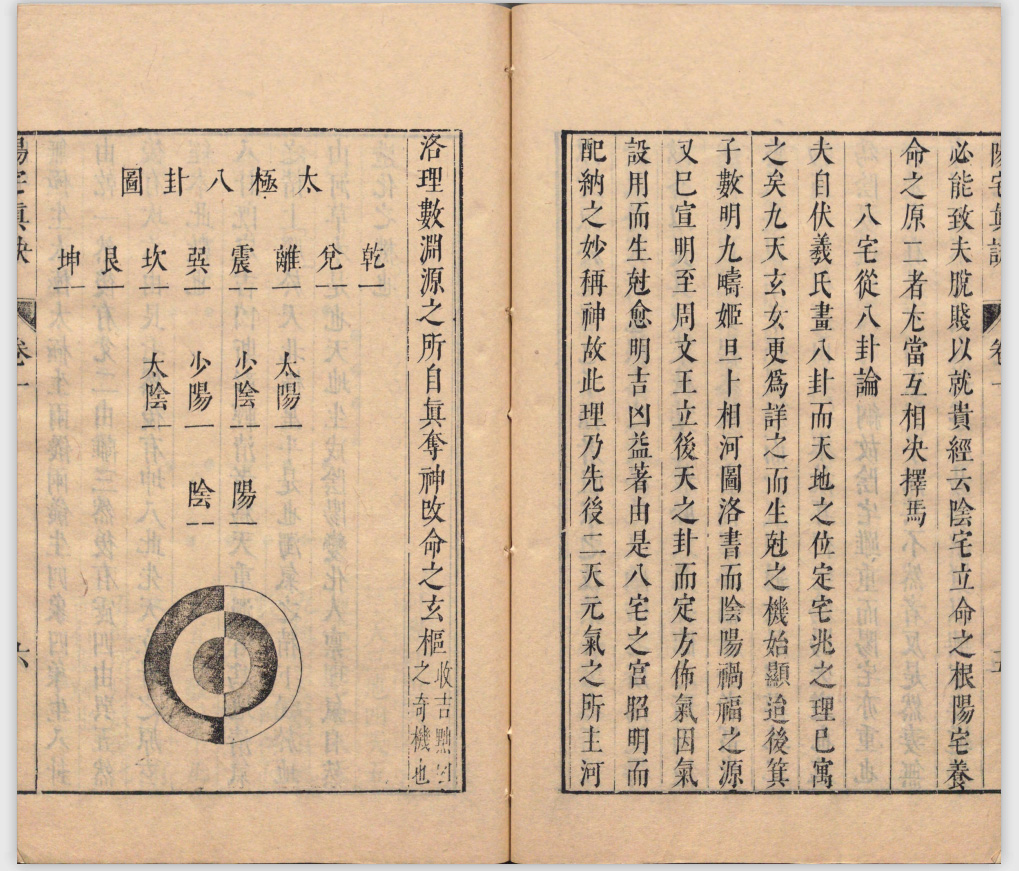 陽宅真訣
卷一
五
必能致夫脫賤以就貴經云陰宅立命之根陽宅養
命之原二者尢當互相决擇焉
八宅從八卦論
夫自伏羲氏畫八卦而天地之位定宅兆之理已寓
之矣九天玄女更爲詳之而生尅之機始顯迨後箕
子數明九疇姬旦卜相河圖洛書而陰陽禍福之源
又已宣明至周文王立後天之卦而定方佈氣因氣
設用而生尅愈明吉凶益著由是八宅之宮昭明而
配納之妙稱神故此理乃先後二天元氣之所主河
洛理數淵源之所自眞奪神改命之玄樞收吉黜凶
之奇機也
太極八卦圖
乾 兌 離 震 巽 坎 艮 坤
太陽 少陰 少陽 太陰
陽 陰
陽宅眞訣
卷一
六